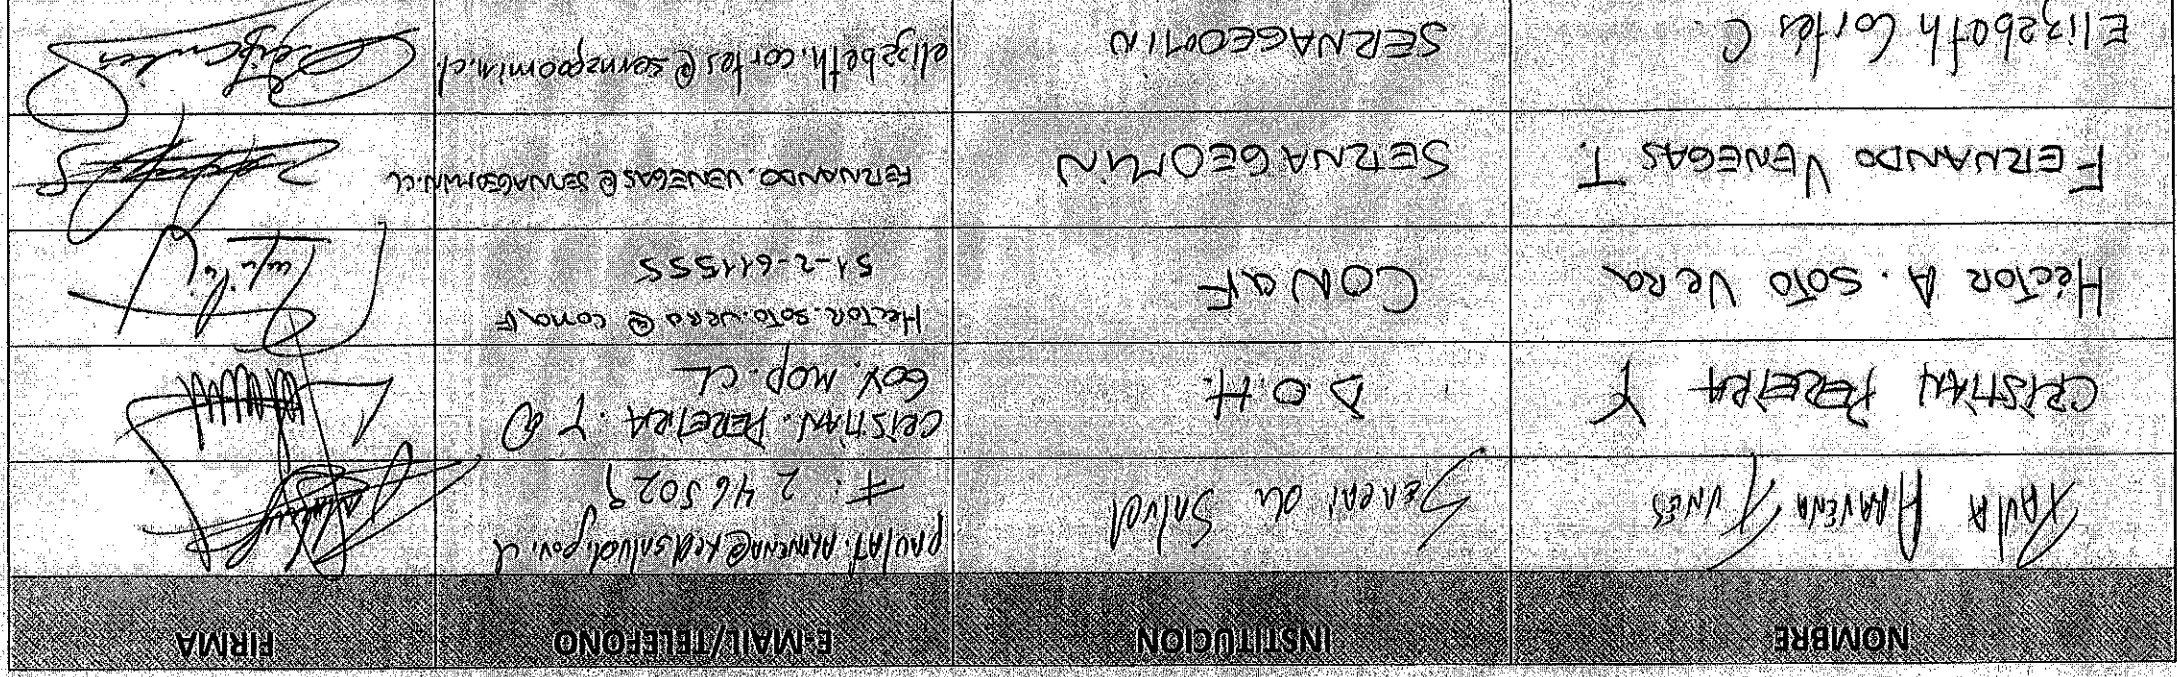 NOMBRE INSTITUCION E-MAIL/TELEFONO FIRMA
PAULA ARAVENA FUNÉS Seremi de Salud paulaT.ARAVENA@redsalud.gov.cl
F: 2 465029
CRISTIAN PEREIRA Y D.O.H. CRISTIAN.PEREIRA.Y@
GOV.MOP.CL
Héctor A. Soto Vera CONAF Hector.soto.vera@conaf
51-2-611555
FERNANDO VENEGAS T. SERNAGEOMIN FERNANDO.VENEGAS@SERNAGEOMIN.CL
Elizabeth Cortés C. SERNAGEOMIN elizabeth.cortes@sernageomin.cl